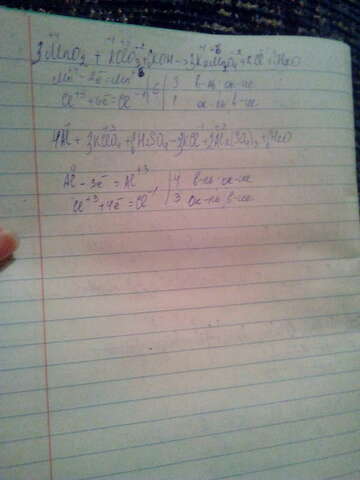 3MnO2 + KClO3 + KOH → 3K2MnO4 + KCl + H2O
Mn+4 - 2ē = Mn+6 | 3 в-ль; ок-ие
Cl+5 + 6ē = Cl-1 | 1 ок-ль; в-ие
4Al + 3KClO2 + H2SO4 → 3KCl + 2Al2(SO4)3 + H2O
Al0 - 3ē = Al+3 | 4 в-ль; ок-ие
Cl+3 + 4ē = Cl- | 3 Ок-ль; в-ие